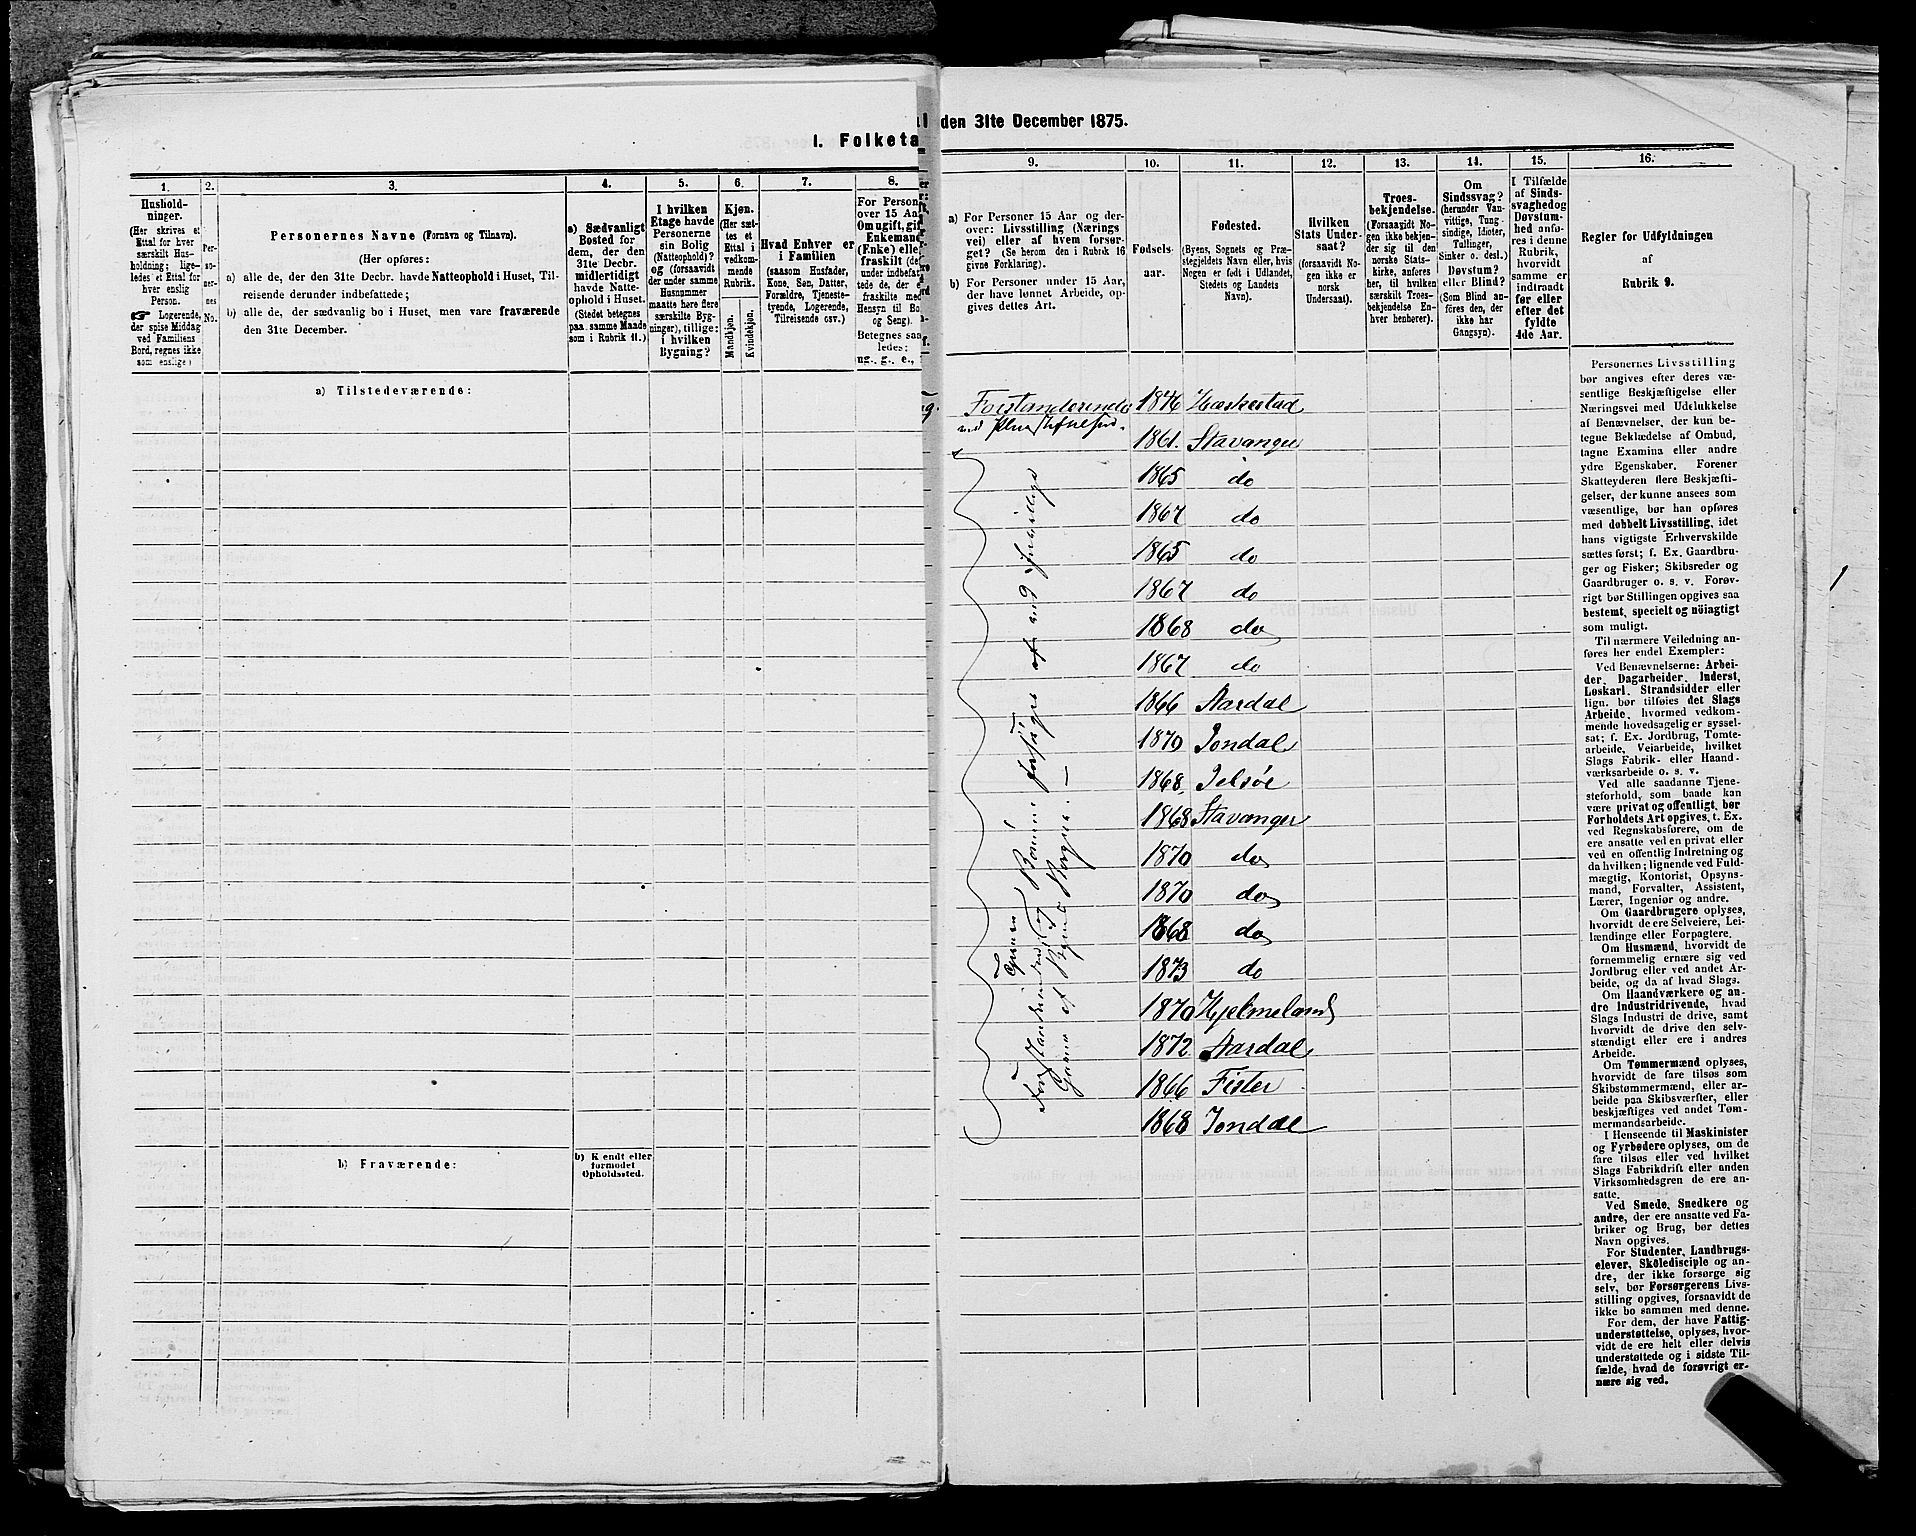 I. Folketa
1.
2.
3.
4.
5.
6.
7.
8.
Hushold-
ninger.
(Her skrives et
Ettal for hver
særskilt Hus-
holdning; lige-
ledes et Ettal for
hver enslig
Person.
☛ Logerende,
der spise Middag
ved Familiens
Bord, regnes ikke
som enslige.)
Per-
so-
ner-
nes
No.
Personernes Navne (Fornavn og Tilnavn).
(Her opføres:
a) alle de, der den 31te Decbr. havde Natteophold i Huset, Til-
reisende derunder indbefattede;
b) alle de, der sædvanlig bo i Huset, men vare fraværende
den 31te December.
a) Sædvanligt
Bosted for
dem, der den
31te Decbr.
midlertidigt
havde Natte-
ophold i Huset.
(Stedet betegnes
paa samme Maade
som i Rubrik 11.)
I hvilken
Etage havde
Personerne
sin Bolig
(Natteophold)?
og (forsaavidt
der under samme
Husnummer
maatte høre flere
særskilte Byg-
ninger), tillige:
i hvilken
Bygning?
Kjøn.
(Her sæt-
tes et
Ettal i
vedkom-
mende
Rubrik.
Mandkjøn.
Kvindekjøn.
Hvad Enhver er
i Familien
(saasom Husfader,
Kone, Søn, Datter,
Forældre, Tjeneste-
tyende, Logerende,
Tilreisende osv.)
For Person
over 15 Aa
Om ugift, gif
Enkemand
(Enke) elle
fraskilt (de
under indbefat-
tede de, der e
fraskilte med
Hensyn til Bo
og Seng).
Betegnes saa
ledes:
ug., g., e.,
a) Tilstedeværende:
b) Fraværende:
b) Kjendt eller
formodet
Opholdssted.
den 31te December 1875.
9.
10.
11.
12.
13.
14.
15.
16.
a) For Personer 15 Aar og der-
over: Livsstilling (Nærings
vei) eller af hvem forsør-
get? (Se herom den i Rubrik 16
givne Forklaring).
b) For Personer under 15 Aar,
der have lønnet Arbeide, op-
gives dettes Art.
Fødsels-
aar.
Fødested.
(Byens, Sognets og Præ-
stegjeldets Navn eller, hvis
Nogen er født i Udlandet,
Stedets og Landets
Navn).
Hvilken
Stats Under-
saat?
(forsaavidt No-
gen ikke er
norsk
Undersaat).
Troes-
bekjendelse.
(Forsaavidt No-
gen ikke bekjen-
der sig til den
norske Stats-
kirke, anføres
her, til hvilken
særskilt Troes-
bekjendelse En-
hver henhører).
Om
Sindssvag?
(herunder Van-
vittige, Tung-
sindige, Idioter,
Tullinger,
Sinker o. desl.)
Døvstum?
eller Blind?
(Som Blind an-
føres den, der
ikke har
Gangsyn).
I Tilfælde
af Sinds-
svaghed og
Døvstum-
hed anfø-
res i denne
Rubrik,
hvorvidt
samme er
indtraadt
før eller
efter det
fyldte
4de Aar.
Regler for Udfyldningen
af
Rubrik 9.
Forstanderinde 1846
1861. Stavanger
1865 do
1867 do
1865 do
1867 do
1868 do
1867 do
1866 Aardal
1870 Jondal
1868 Jelsøe
1868 Stavanger
1870 do
1870 do
1868 do
1873 do
1870 Hjelmeland
1872 Aardal
1866 Fister
1868 Jondal
Personernes Livsstilling
bør angives efter deres væ-
sentlige Beskjæftigelse eller
Næringsvei med Udelukkelse
af Benævnelser, der kun be-
tegne Beklædelse af Ombud,
tagne Examina eller andre
ydre Egenskaber. Forener
Skatteyderen flere Beskjæfti-
gelser, der kunne ansees som
væsentlige, bør han opføres
med dobbelt Livsstilling, idet
hans vigtigste Erhvervskilde
sættes først; f. Ex. Gaardbru-
ger og Fisker; Skibsreder og
Gaardbruger o. s. v. Forøv-
rigt bør Stillingen opgives saa
bestemt, specielt og nøiagtigt
som muligt.
Til nærmere Veiledning an-
føres her endel Exempler:
Ved Benævnelserne: Arbei-
der, Dagarbeider, Inderst,
Løskarl, Strandsidder eller
lign. bør tilføies det Slags
Arbeide, hvormed vedkom-
mende hovedsagelig er syssel-
sat; f. Ex. Jordbrug, Tomte-
arbeide, Veiarbeide, hvilket
Slags Fabrik- eller Haand-
værksarbeide o. s. v.
Ved alle saadanne Tjene-
steforhold, som baade kan
være privat og offentligt, bør
Forholdets Art opgives, t. Ex.
ved Regnskabsførere, om de
ere ansatte ved en privat eller
ved en offentlig Indretning og
da hvilken; lignende ved Fuld-
mægtig, Kontorist, Opsyns-
mand, Forvalter, Assistent,
Lærer, Ingeniør og andre.
Om Gaardbrugere oplyses,
hvorvidt de ere Selveiere, Lei-
lændinge eller Forpagtere.
Om Husmænd, hvorvidt de
fornemmelig ernære sig ved
Jordbrug eller ved andet Ar-
beide, og da af hvad Slags.
Om Haandværkere og an-
dre Industridrivende, hvad
Slags Industri de drive, samt
hvorvidt de drive den selv-
stændigt eller ere i andres
Arbeide.
Om Tømmermænd oplyses,
hvorvidt de fare tilsøs som
Skibstømmermænd, eller ar-
beide paa Skibsværfter, eller
beskjæftiges ved andet Tøm-
mermandsarbeide.
I Henseende til Maskinister
og Fyrbødere oplyses, om de
fare tilsøs eller ved hvilket
Slags Fabrikdrift eller anden
Virksomhedsgren de ere an-
satte.
Ved Smede, Snedkere og
andre, der ere ansatte ved Fa-
briker og Brug, bør dettes
Navn opgives.
For Studenter, Landbrugs-
elever, Skoledisciple og an-
dre, der ikke forsørge sig
selv, bør Forsørgerens Livs-
stilling opgives, forsaavidt de
ikke bo sammen med denne.
For dem, der have Fattig-
understøttelse, oplyses, hvor-
vidt de ere helt eller delvis
understøttede og i sidste Til-
fælde, hvad de forøvrigt er-
nære sig ved.